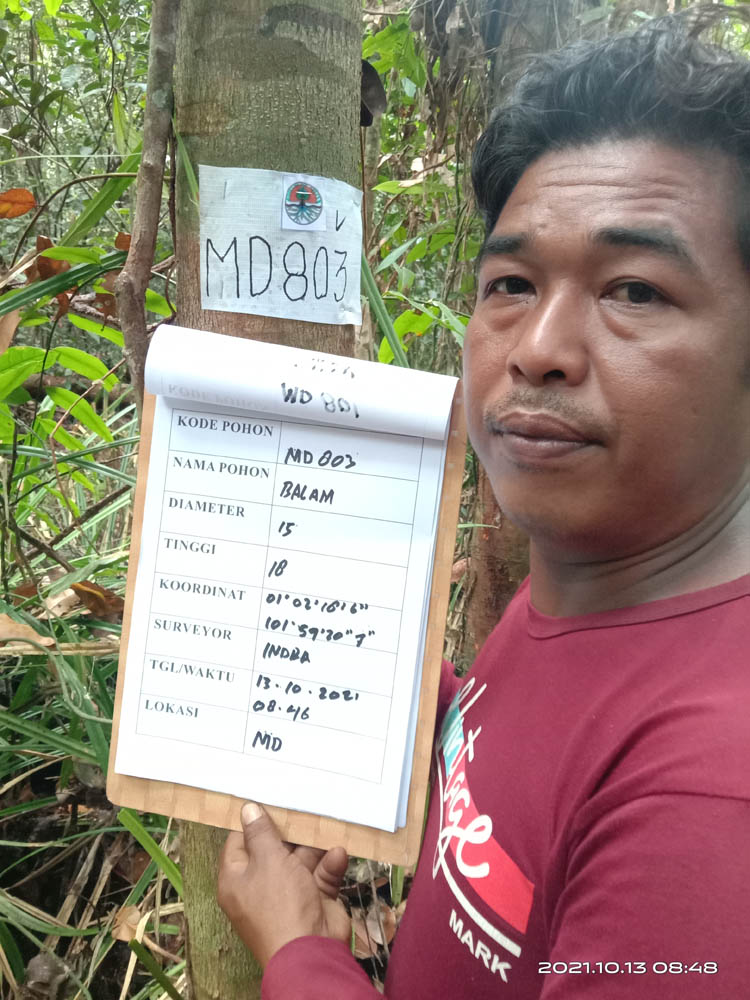 MD 803
WD 801
KODE POHON MD 803
NAMA POHON BALAM
DIAMETER 15
TINGGI 18
KOORDINAT 01°02'16'6"
101°59'20"7"
SURVEYOR INDRA
TGL/WAKTU 13.10.2021
08.46
LOKASI MD
MARK
2021.10.13 08:48